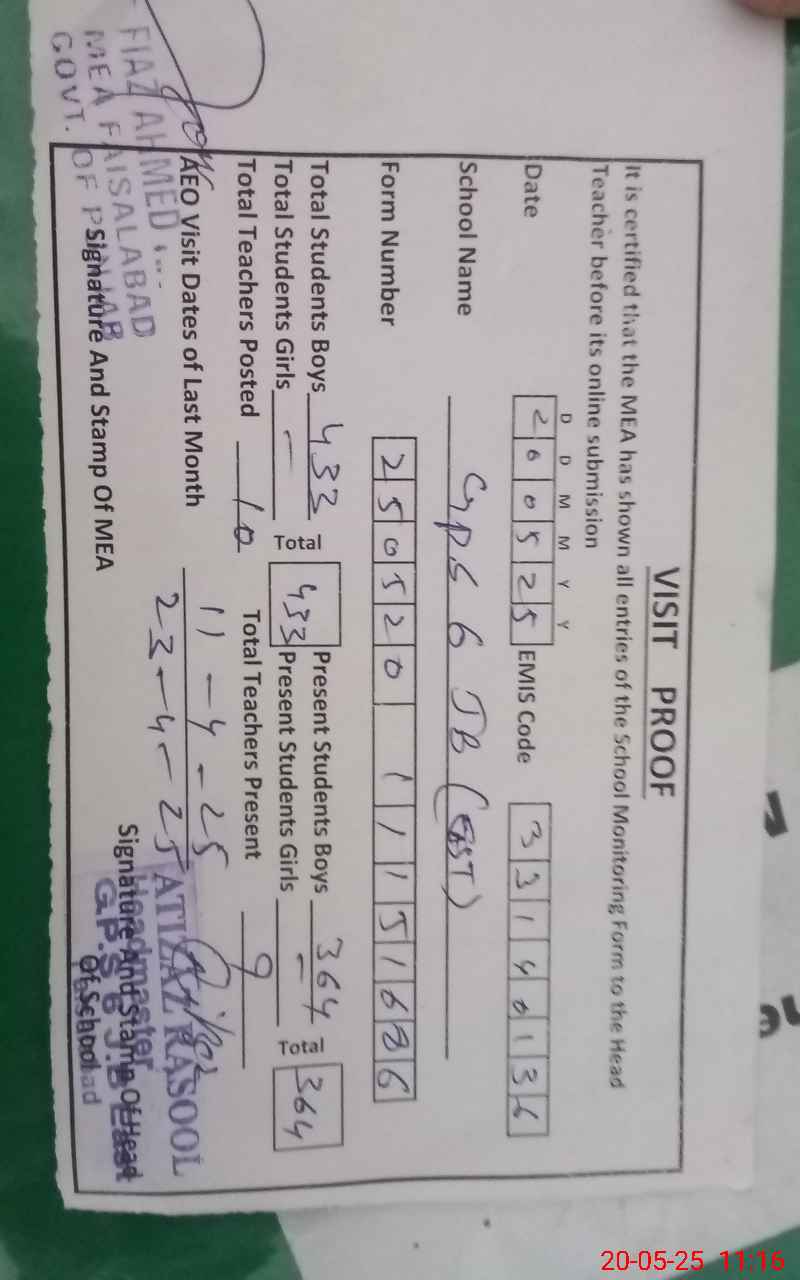 VISIT PROOF
It is certified that the MEA has shown all entries of the School Monitoring Form to the Head
Teacher before its online submission
D D M M Y Y
Date 2 0 0 5 2 5 EMIS Code 3 3 1 4 0 1 3 6
School Name GPS 6 JB (EAST)
Form Number 2 5 0 5 2 0 1 1 1 5 1 6 8 6
Total Students Boys 433 Total 433 Present Students Boys 364 Total 364
Total Students Girls – Present Students Girls –
Total Teachers Posted 10 Total Teachers Present 9
AEO Visit Dates of Last Month 11-4-25
23-4-25
Signature And Stamp Of MEA
Signature And Stamp Of Head
Of School
FIAZ AHMED
MEA FAISALABAD
GOVT. OF PUNJAB
RASOOL
Headmaster
G.P.S 6 J.B East
20-05-25 11:16